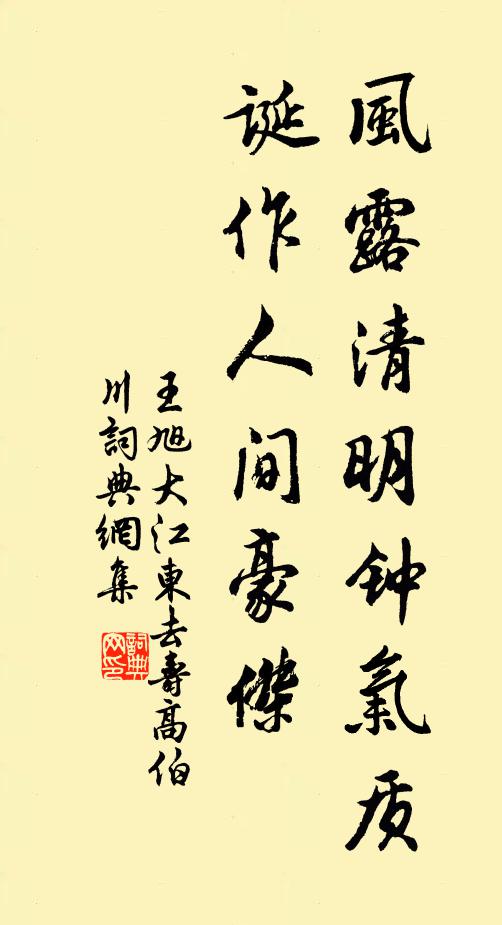 風露清明钟氣质
誕作人间豪傑
王旭大江東去壽高伯
川詞典網集
詞典网印